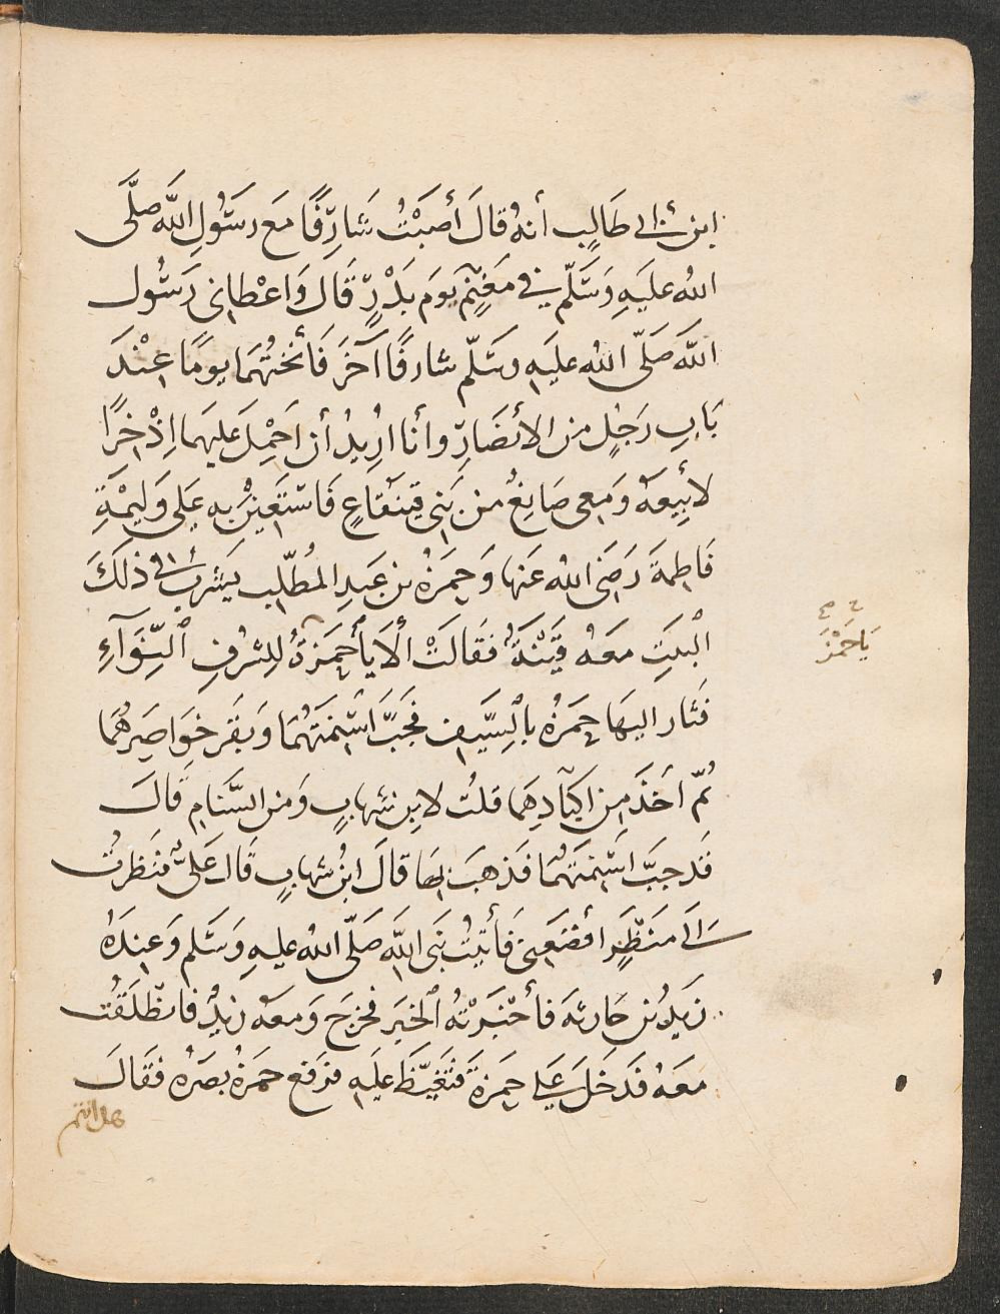 ابن أبي طَالِبٍ أنهُ قالَ أصَبْتُ شَارِفًا مَع رسَوُلِ اللَّه صَلَّى
اللهُ عليَهِ وَسَلّم في مَغنَمٍ يَومَ بَدْرٍ قَال وَاعْطانِى رَسُول
اللَّه صَلّى اللهُ عليَهِ وسَلّم شارفًا آخَرَ فَأنَختهُمَا يومًا عِنْدَ
بَابِ رَجُلٍ من الأنصَارِ وأنا ارُيدُ أن احَمْلَ عَليهمَا اِذْخِرًا
لأبِيعَهُ وَمَعِى صَايغٌ من بَنِى قينقَاعٍ فَاسْتَعينُ بِهِ عَلى وَليمَةِ
فَاطِمَةَ رَضَى اللهُ عَنها وَحَمزَةُ بن عَبدِ المُطَّلِب يَشرَبُ فى ذلكَ
البْيَتِ معَهُ قَيْنَةٌ فقَالَتْ ألَا يَا حَمزَةُ لِلشُرُفِ النِّوَآءِ
فَثَار اليهَا حمَزةُ بالسَّيفِ فجَبَّ اسْنِمَتَهُمَا وَبقَر خَوَاصِرَهُمَا
ثُمّ أخَذَ مِن اكبَادِهِمَا قلتُ لابنِ شِهابٍ وَمن السَّنَامِ قَالَ
قَد جبَّ اسْنِمَتَهُمَا فَذهبَ بهَا قالَ ابنُ شهابٍ قَال عَلىٌّ فنَظرتُ
اِلَى مَنظَرٍ أفظعَنِى فَأتيتُ نَبىَ اللَّه صَلّى اللهُ عليهِ وَسَلم وَعِندَهُ
زيَدُ بن حَارثةَ فأخْبَرْتهُ الخبَر فخرجَ وَمعهُ زيَدٌ فانطَلَقتُ
معَهُ فدَخَلَ عَلى حمزَةَ فتَغَيّظَ عليَهِ فرَفع حَمزةُ بصَرهُ فقَالَ
هل انتم
يَا حَمْزَ